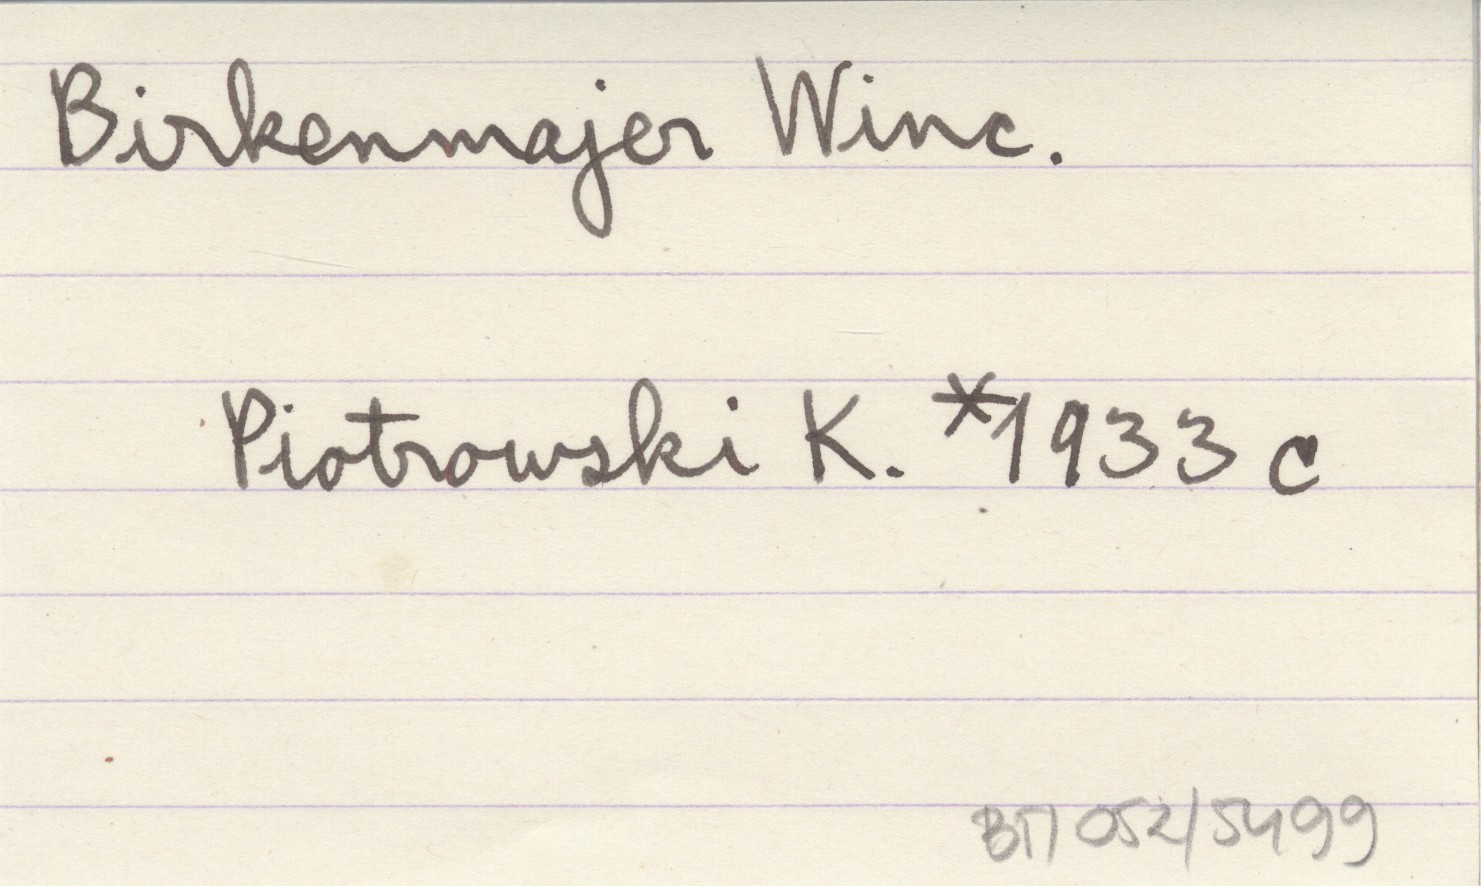 Birkenmajer Winc.
Piotrowski K. *1933 c
BTI 052/5499